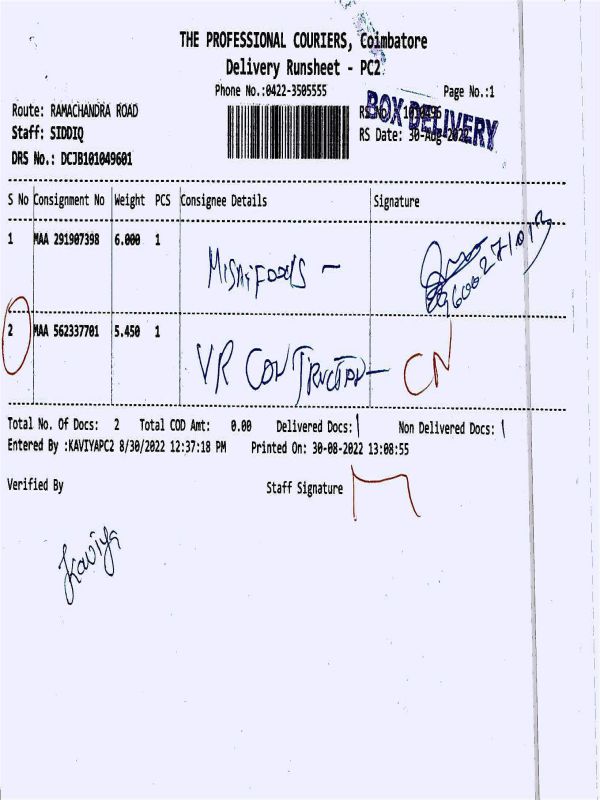 THE PROFESSIONAL COURIERS, Coimbatore
Delivery Runsheet - PC2
Phone No.:0422-3505555 Page No.:1
Route: RAMACHANDRA ROAD
BOX DELIVERY
Staff: SIDDIQ RS Date: 30-Aug-2022
DRS No.: DCJB101049601
S No Consignment No Weight PCS Consignee Details Signature
1 MAA 291907398 6.000 1
2 MAA 562337701 5.450 1
VR CN
Total No. Of Docs: 2 Total COD Amt: 0.00 Delivered Docs: 1 Non Delivered Docs: 1
Entered By :KAVIYAPC2 8/30/2022 12:37:18 PM Printed On: 30-08-2022 13:08:55
Verified By Staff Signature
Kaviya